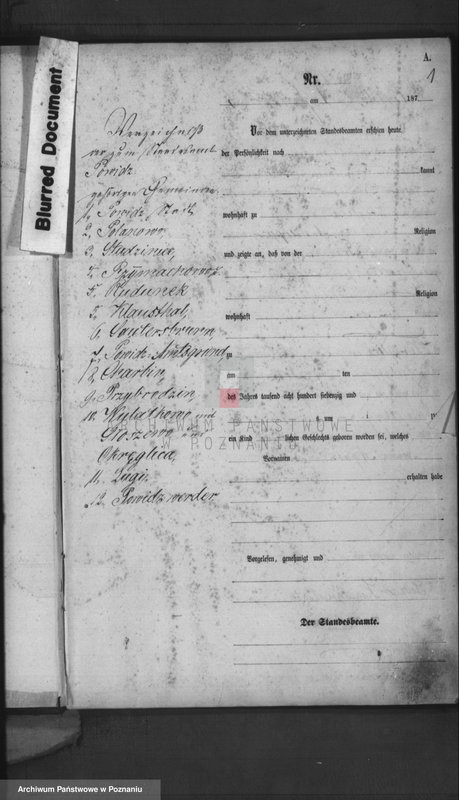 Blurred Document
A.
1
Nr.
am 187
Verzeichniß
der zum Standesamt
Powidz
gehörigen Gemeinden
1. Powidz, Stadt
2. Polanowo
3. Studzinice,
4.
5. Rudunek
5. Klausthal,
6. Sautersbrunn
7. Powidz-Amtsgrund
8. Charbin,
9. Przybrodzin,
10. Wylatkowo mit
Stoszewo und
Okręglica,
11. Lugi.
12. Powidzwerder
Vor dem unterzeichneten Standesbeamten erschien heute
der Persönlichkeit nach
kannt
wohnhaft zu
Religion
und zeigte an, daß von der
Religion
wohnhaft
zu
am ten
des Jahres tausend acht hundert siebenzig und
um
ein Kind lichen Geschlechts geboren worden sei, welches
Vornamen
erhalten habe
Vorgelesen, genehmigt und
Der Standesbeamte.
ARCHIWUM PAŃSTWOWE
W POZNANIU
Archiwum Państwowe w Poznaniu